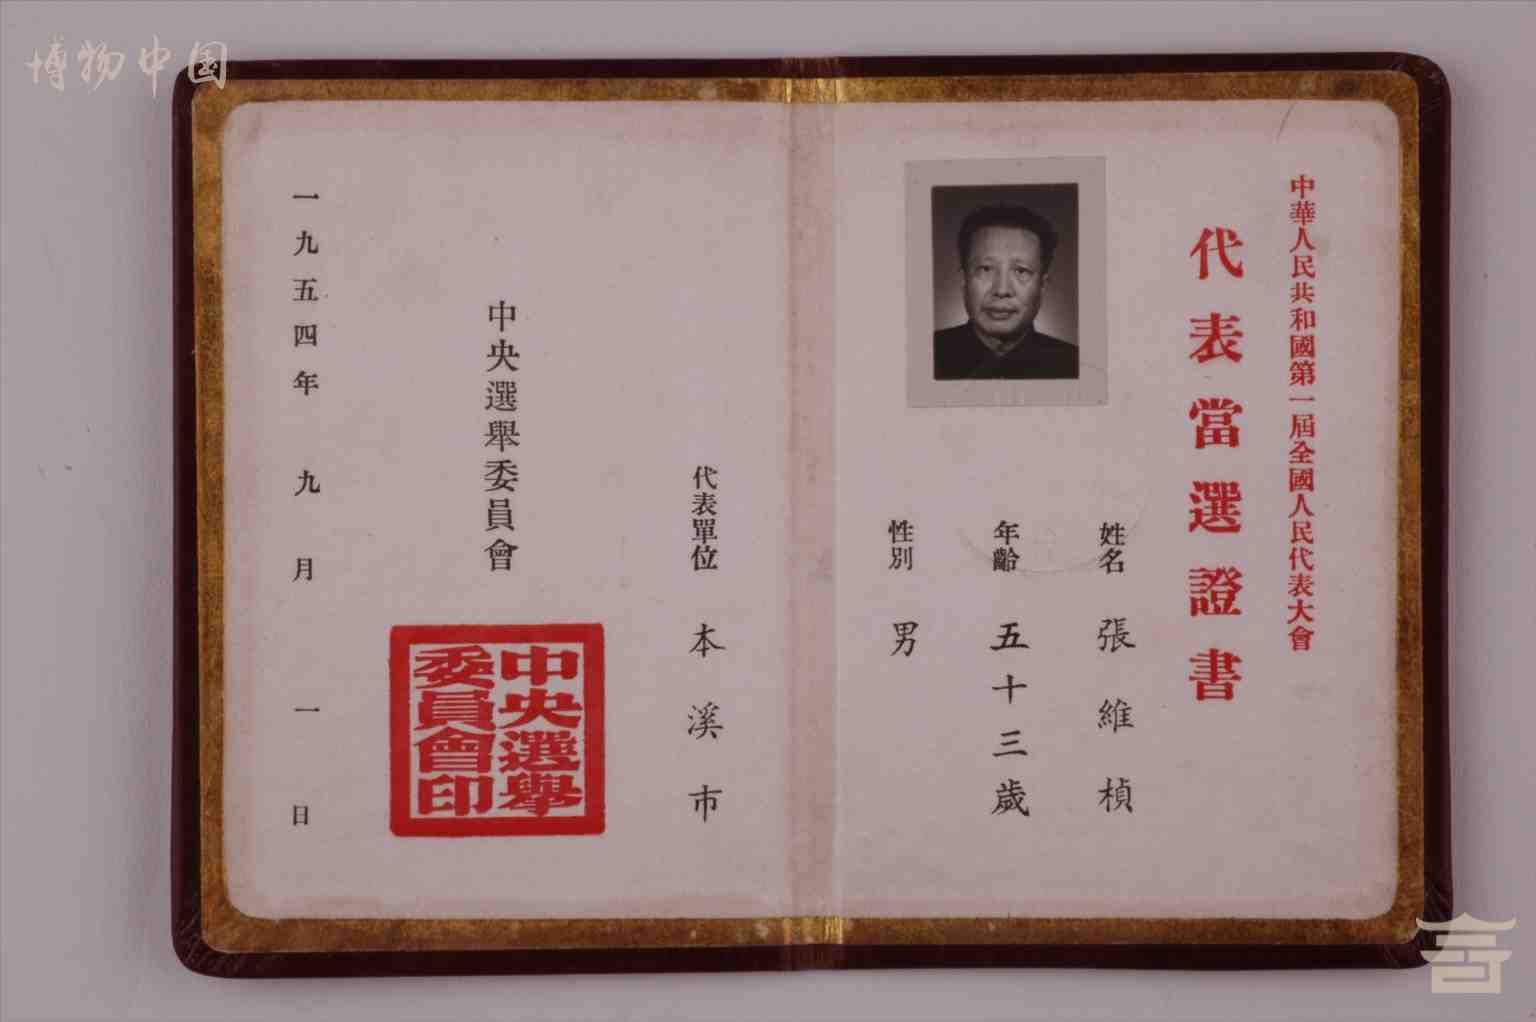 博物中国
中華人民共和國第一屆全國人民代表大會
代表當選證書
姓名 張維楨
年齡 五十三歲
性別 男
代表單位 本溪市
中央選舉委員會
中央選舉
委員會印
一九五四年 九月 一日